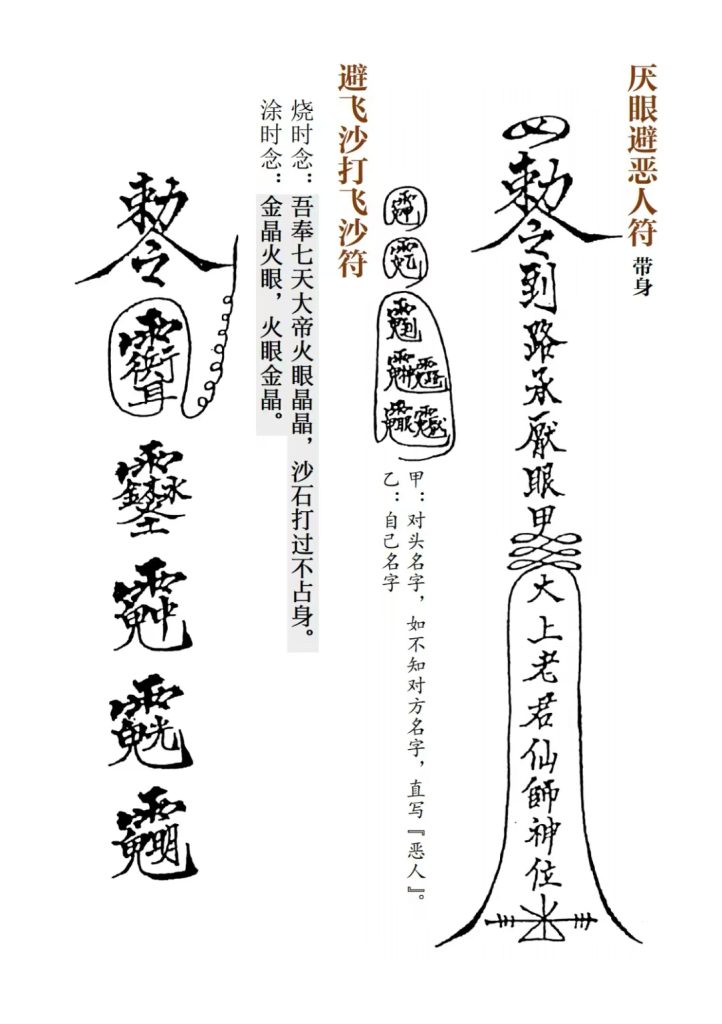 厌眼避恶人符 带身
四
勅令到路承厭眼甲
大上老君仙師神位
甲：对头名字，如不知对方名字，直写『恶人』。
乙：自己名字
避飞沙打飞沙符
烧时念：吾奉七天大帝火眼晶晶，沙石打过不占身。
涂时念：金晶火眼，火眼金晶。
勅令